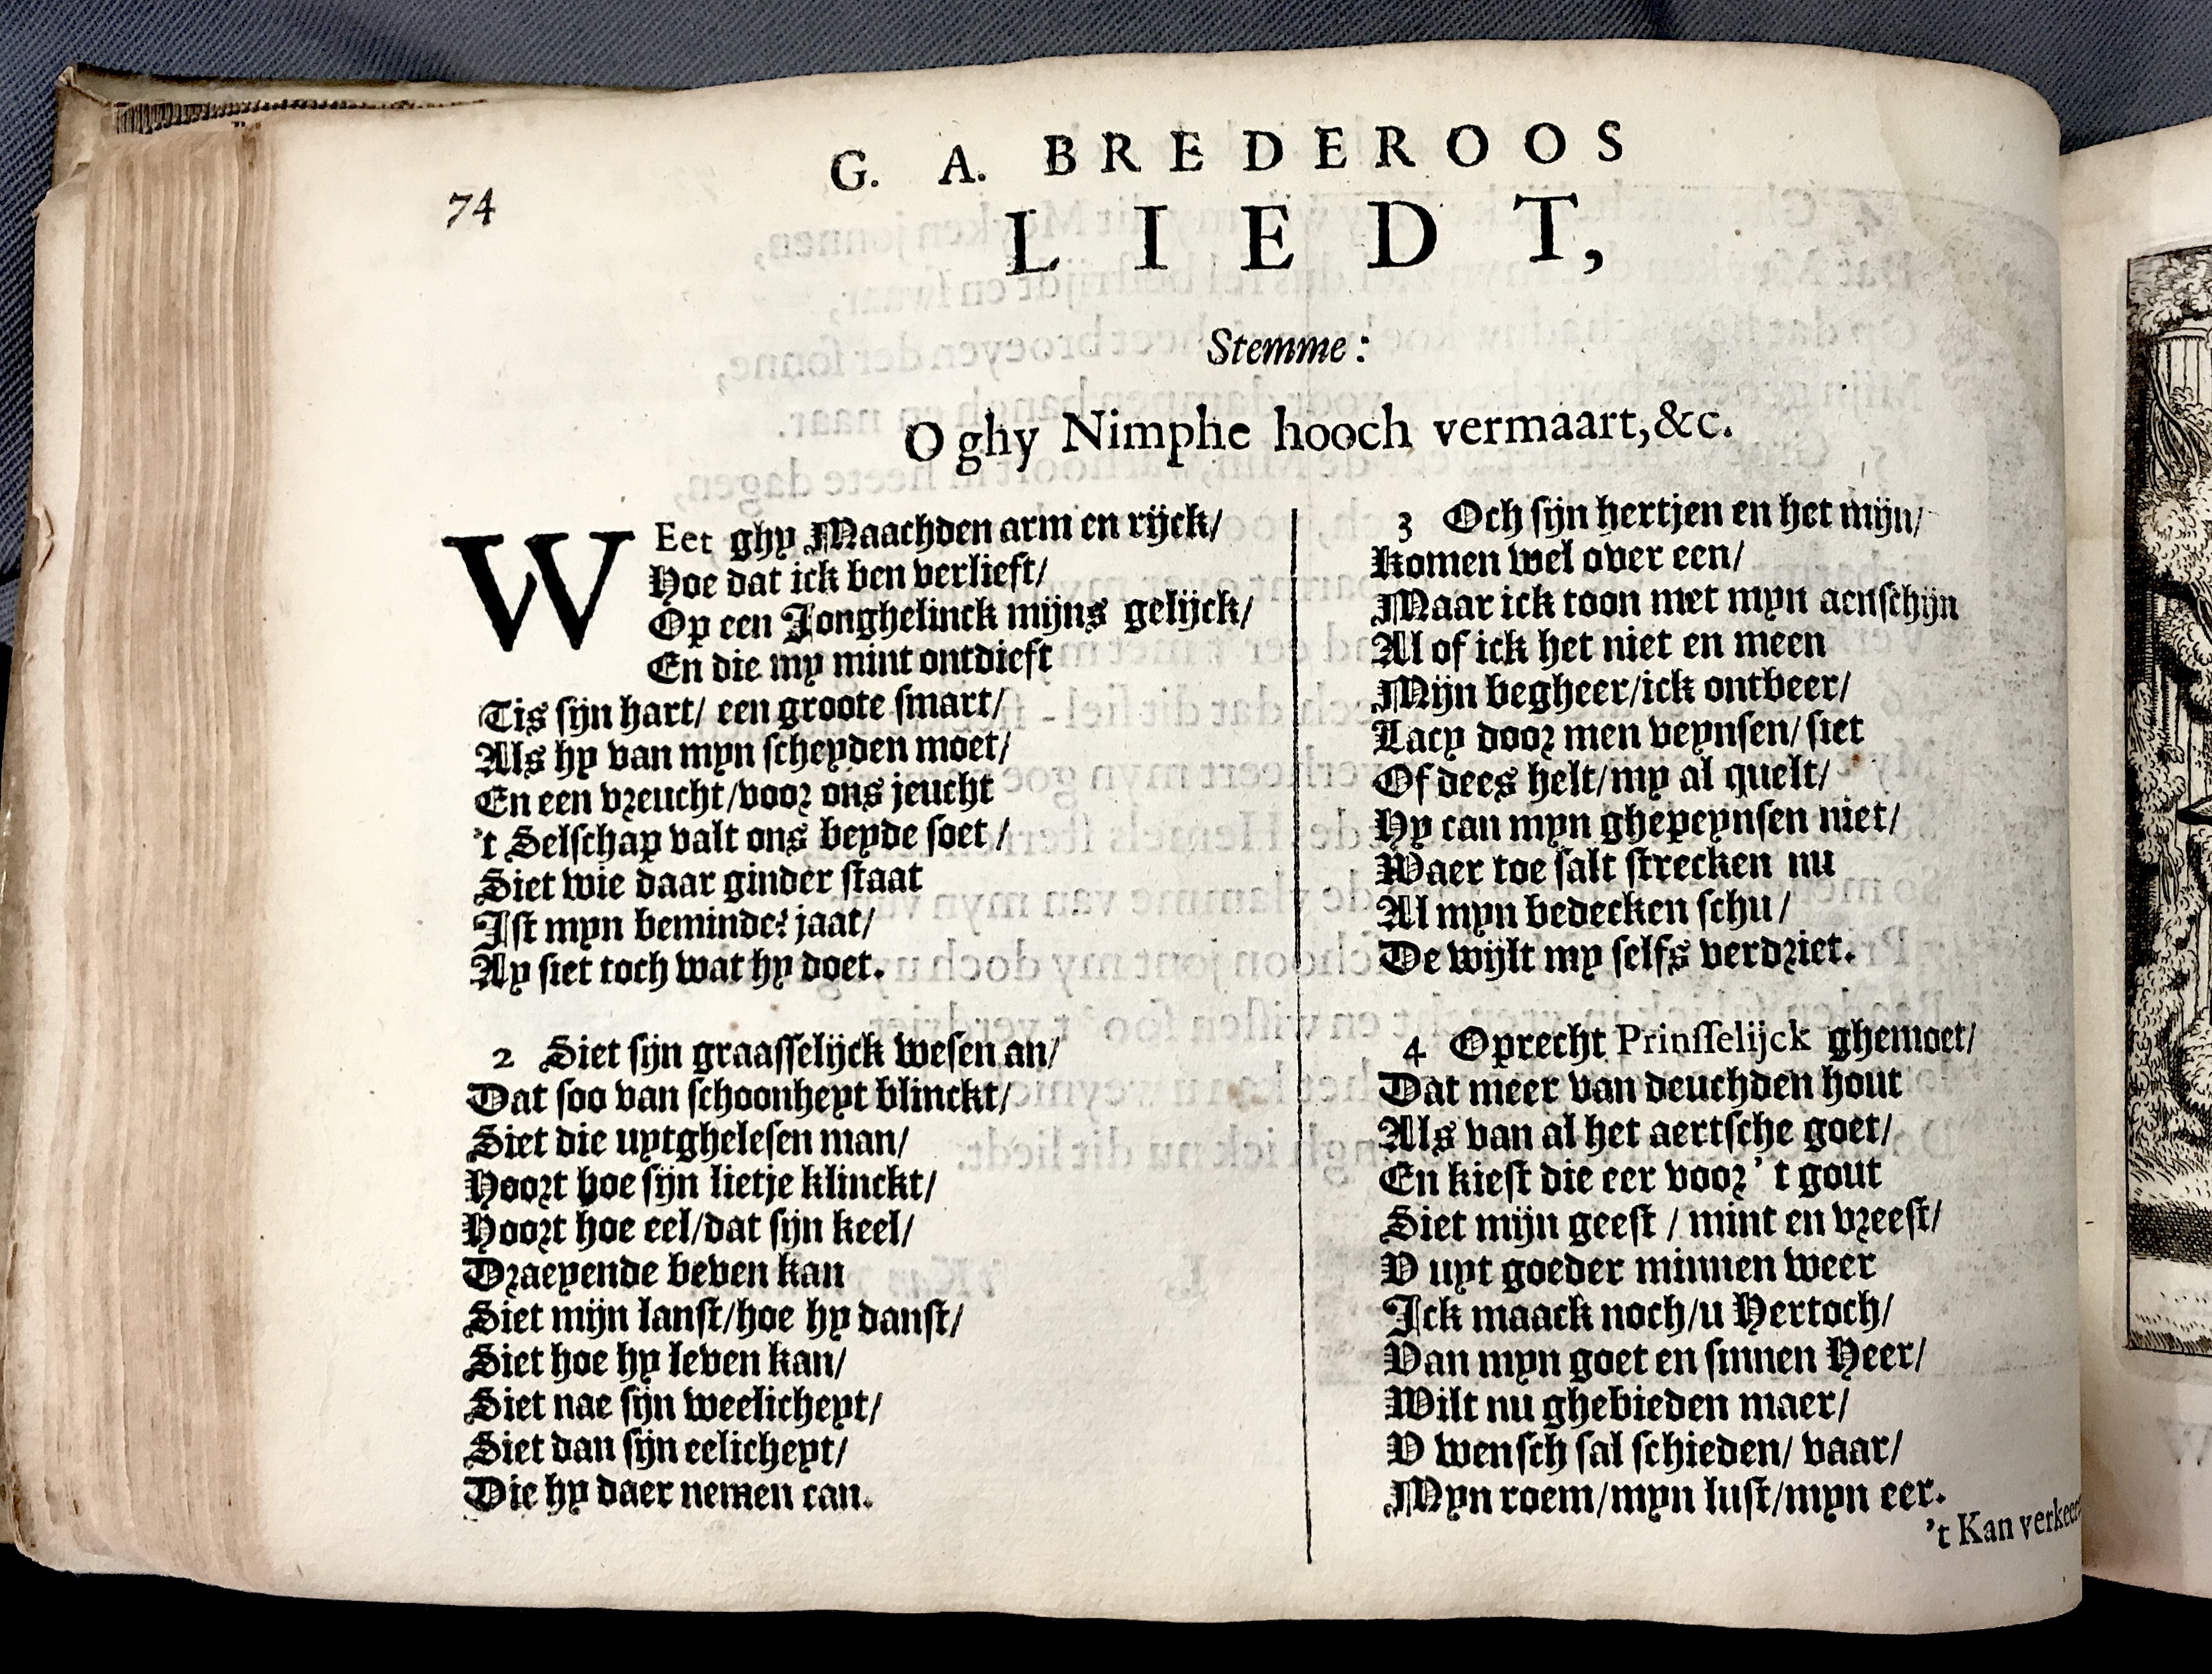 74
G. A. BREDEROOS
LIEDT,
Stemme:
O ghy Nimphe hooch vermaart, &c.
WEet ghy Maachden arm en rijck/
Hoe dat ick ben verlieft/
Op een Jonghelinck mijns gelijck/
En die my mint ontdieft
Tis sijn hart/ een groote smart/
Als hy van myn scheyden moet/
En een vreucht/voor ons jeucht
't Selschap valt ons beyde soet/
Siet wie daar ginder staat
Ist myn beminde? jaat/
Ay siet toch wat hy doet.
2 Siet sijn graasselijck wesen an/
Dat soo van schoonheyt blinckt/
Siet die uytghelesen man/
Hoort hoe sijn lietje klinckt/
Hoort hoe eel/dat sijn keel/
Draeyende beven kan
Siet mijn lanst/hoe hy danst/
Siet hoe hy leven kan/
Siet nae sijn weelicheyt/
Siet dan sijn eelicheyt/
Die hy daer nemen can.
3 Och sijn hertjen en het mijn/
Komen wel over een/
Maar ick toon met myn aenschijn
Al of ick het niet en meen
Mijn begheer/ick ontbeer/
Lacy door men veynsen/ siet
Of dees helt/my al quelt/
Hy can myn ghepeynsen niet/
Waer toe salt strecken nu
Al myn bedecken schu/
De wijlt my selfs verdriet.
4 Oprecht Prinsselijck ghemoet/
Dat meer van deuchden hout
Als van al het aertsche goet/
En kiest die eer voor 't gout
Siet mijn geest / mint en vreest/
V uyt goeder minnen weer
Ick maack noch/u Hertoch/
Van myn goet en sinnen Heer/
Wilt nu ghebieden maer/
V wensch sal schieden/ vaar/
Myn roem/myn lust/myn eer.
't Kan verkeer